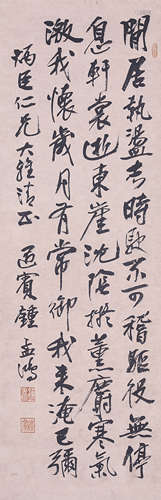 閒居執盪志時駛不可稽驅役無停
息軒裳逝東崖沈陰擬薰麝寒氣
激我懷歲月有常御我來淹已彌
炳臣仁兄大雅清正 遇賓鍾孟鴻